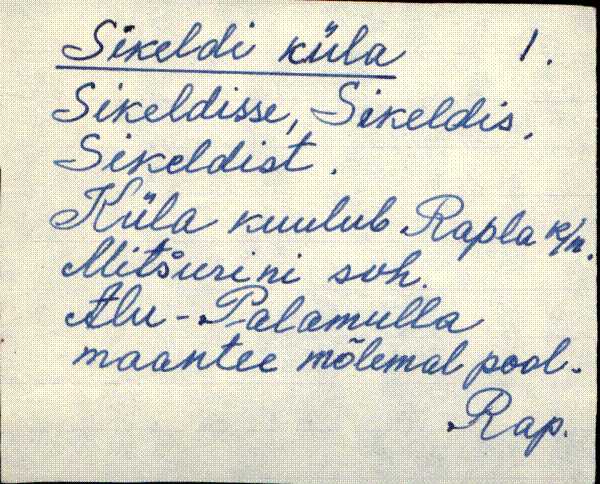 Sikeldi küla 1.
Sikeldisse, Sikeldis,
Sikeldist.
Küla kuulub Rapla k/n.
Mitšurini soh.
Alu-Palamulla
maantee mõlemal pool.
Rap.